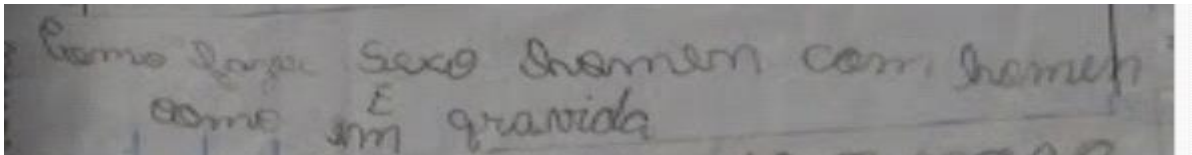 Como fazer sexo homem com homem
come em E gravida